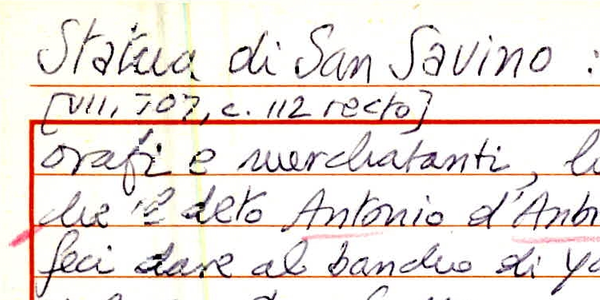 Statua di San Savino :
[VII, 707, c. 112 recto]
orafi e merchatanti,
che 'l deto Antonio d'Anto
feci dare al bancho di